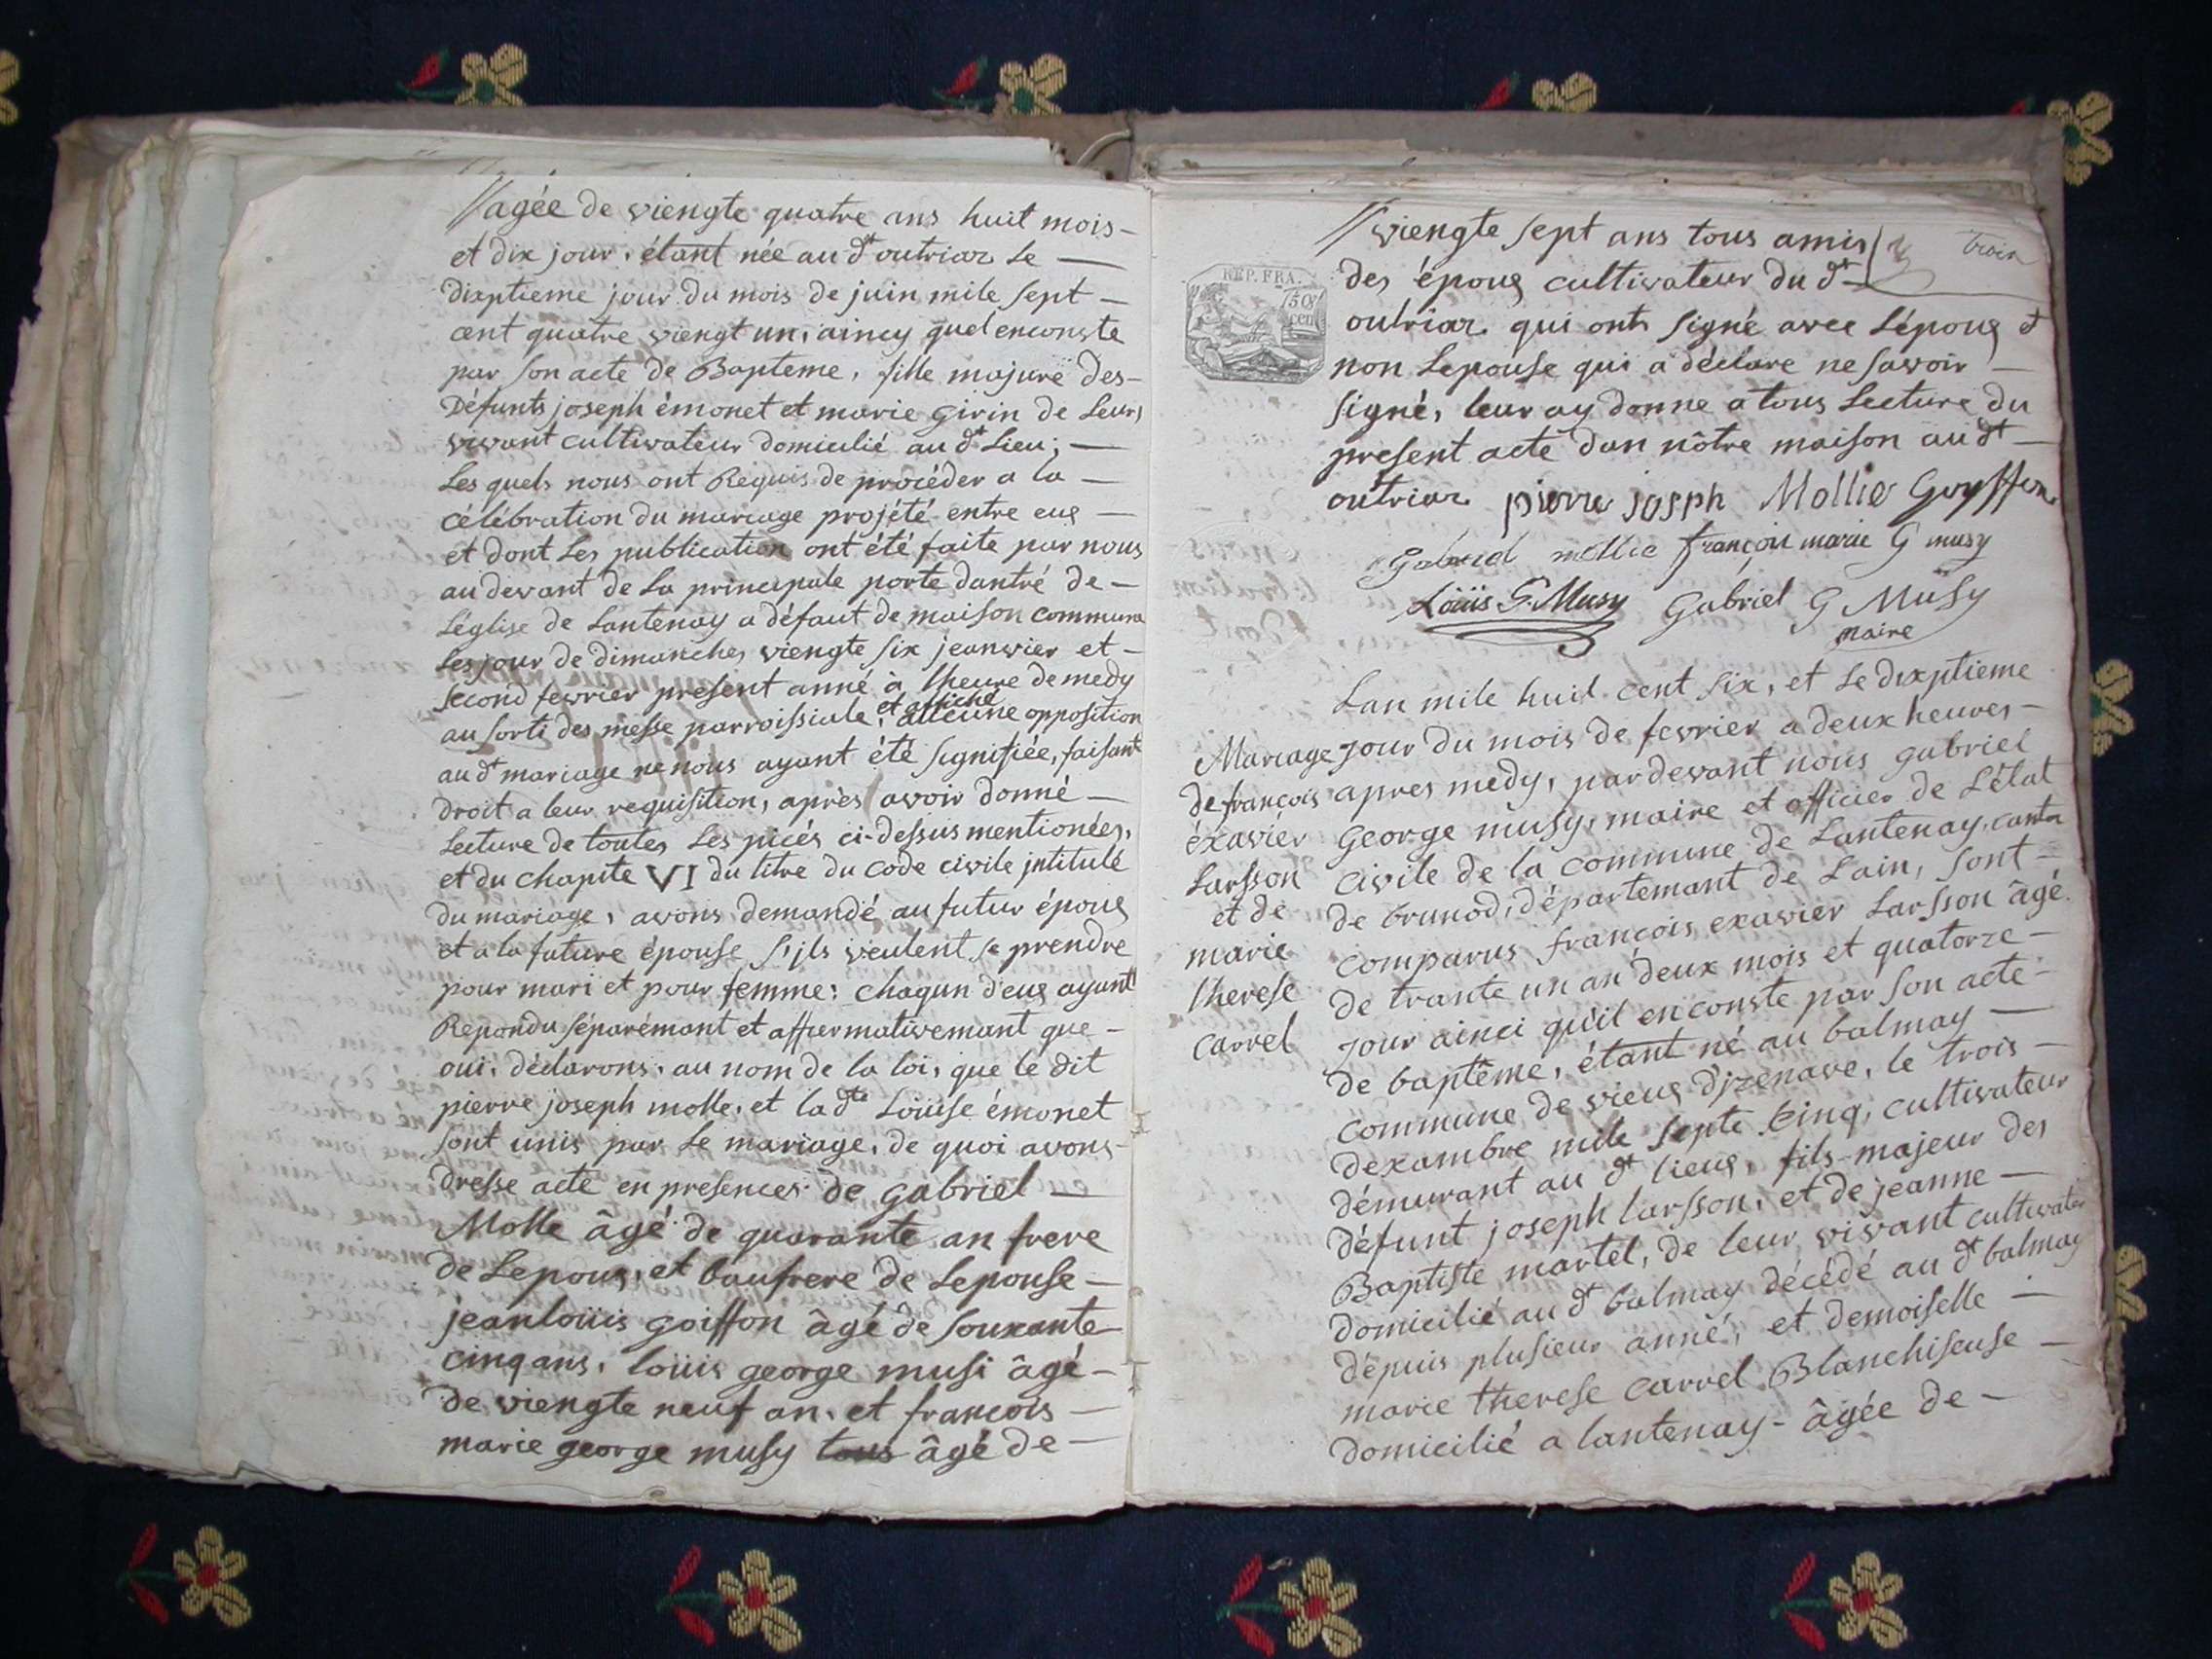 agée de viengte quatre ans huit mois -
et dix jour, étant née au dt outriaz le -
dixptieme jour du mois de juin mile sept -
cent quatre viengt un, aincy quel enconste
par son acte de Bapteme, fille majure des -
Défunts joseph émonet et marie girin de leurs
vivant cultivateur domicilié au dt lieu; -
Les quels nous ont Requis de procéder a la -
célébration du mariage projété entre eux -
et dont les publication ont été faite par nous
au devant de la principale porte dantré de -
Léglise de Lantenay a défaut de maison commune
les jour de dimanches viengte six jeanvier et -
second fevrier present anné à lheure de medy
au sorti des messe parroissiale, et affiché aucune opposition
au dt mariage ne nous ayant été signifiée, faisant
droit a leur requisition, après avoir donné -
Lecture de toutes les picés ci-dessus mentionées,
et du chapite VI du titre du code civile jntitulé
du mariage, avons demandé au futur époux
et a la future épouse s'jls veulent se prendre
pour mari et pour femme: chaqun d'eux ayant
Repondu séparémant et affirmativemant que -
oui, déclarons, au nom de la loi, que le dit
pierre joseph molle, et la dte Loüise émonet
sont unis par le mariage, de quoi avons -
dresse acte en presences de gabriel -
Molle âgé de quarante an frere
de Lepoux, et baufrere de Lepouse -
jeanloüis goiffon âgé de souxante
cinq ans, loüis george musi âgé -
de viengte neuf an, et francois -
marie george musy tous âgé de -
viengte sept ans tous amis
troix
REP. FRA.
50
cen
des époux cultivateur du dt
outriaz qui ont signé avec Lépoux et
non Lepouse qui a déclare ne savoir -
signé, leur ay donne a tous Lecture du
present acte dan nôtre maison au dt -
outriaz pierre joseph Mollie Guyffon
Gabriel mollie françois marie G musy
Loüis G. Musy Gabriel G Musy
maire
Lan mile huit cent six, et le dixptieme
Mariage
de francois
éxavier
Larsson
et de
marie
therese
carrel
jour du mois de fevrier a deux heures -
apres medy, par devant nous gabriel
George musy, maire et officier de Létat
civile de la commune de Lantenay, canton
de brunod, départemant de Lain, sont -
comparus francois exavier Larsson âgé
de trante un an deux mois et quatorze -
jour ainci qu'il enconste par son acte -
de baptême, étant né au balmay -
commune de vieux djzenave, le trois -
dexambre mile septe cinq, cultivateur
démurant au dt lieux, fils majeur des
défunt joseph larsson, et de jeanne -
Baptiste martel, de leur vivant cultivater
domicilié au dt balmay décédé au dt balmay
dépuis plusieur anné, et demoiselle -
marie therese carrel Blanchiseuse -
domicilié a lantenay - âgée de -